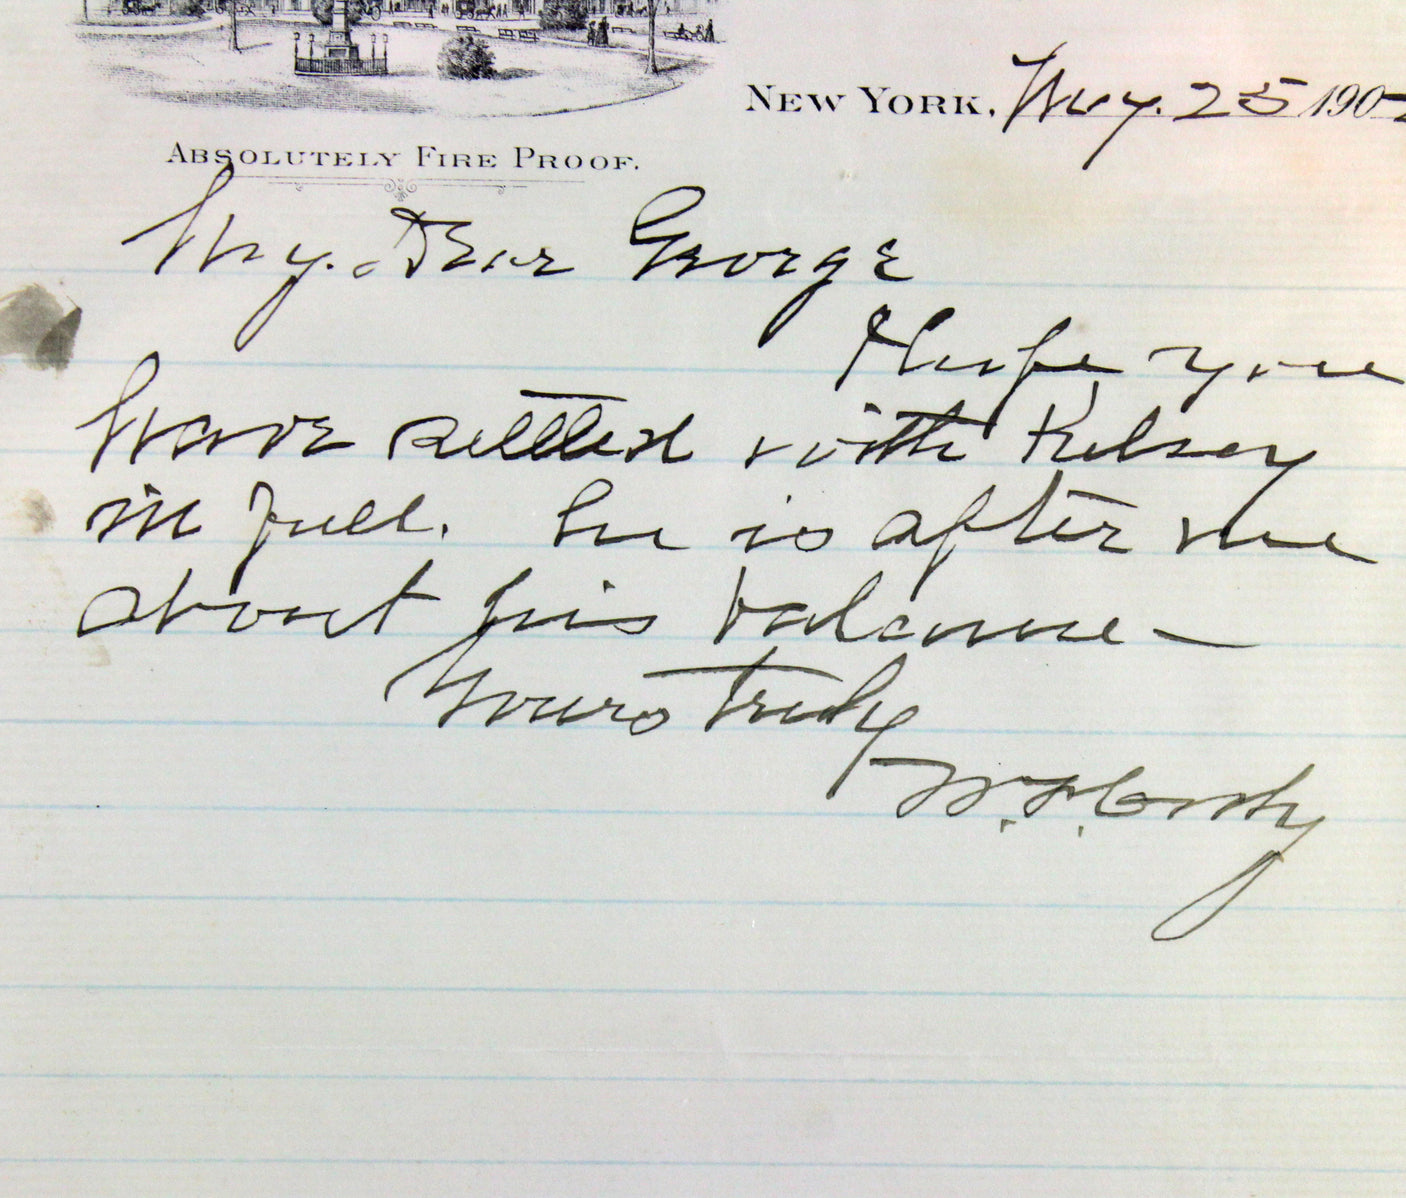 NEW YORK, May. 25 1902
ABSOLUTELY FIRE PROOF.
My. Dear George
Hope you
have settled with Kelsey
in full. he is after me
about his balance —
Yours truly
W. F. Cody